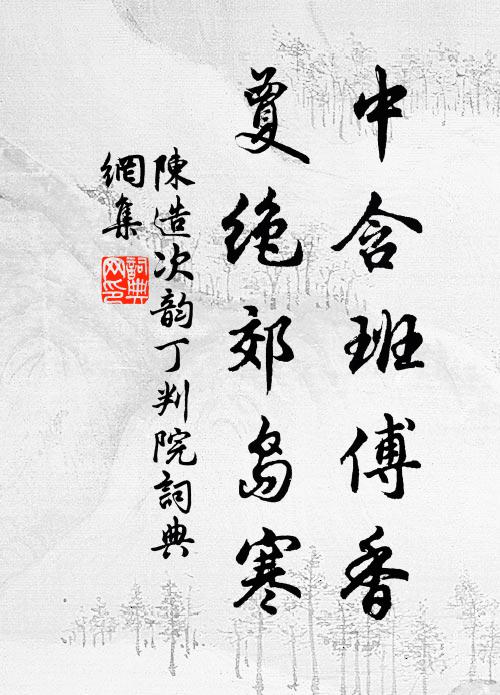 中含班傅香
夐绝郊岛寒
陳造次韵丁判院詞典
網集
詞典
网印